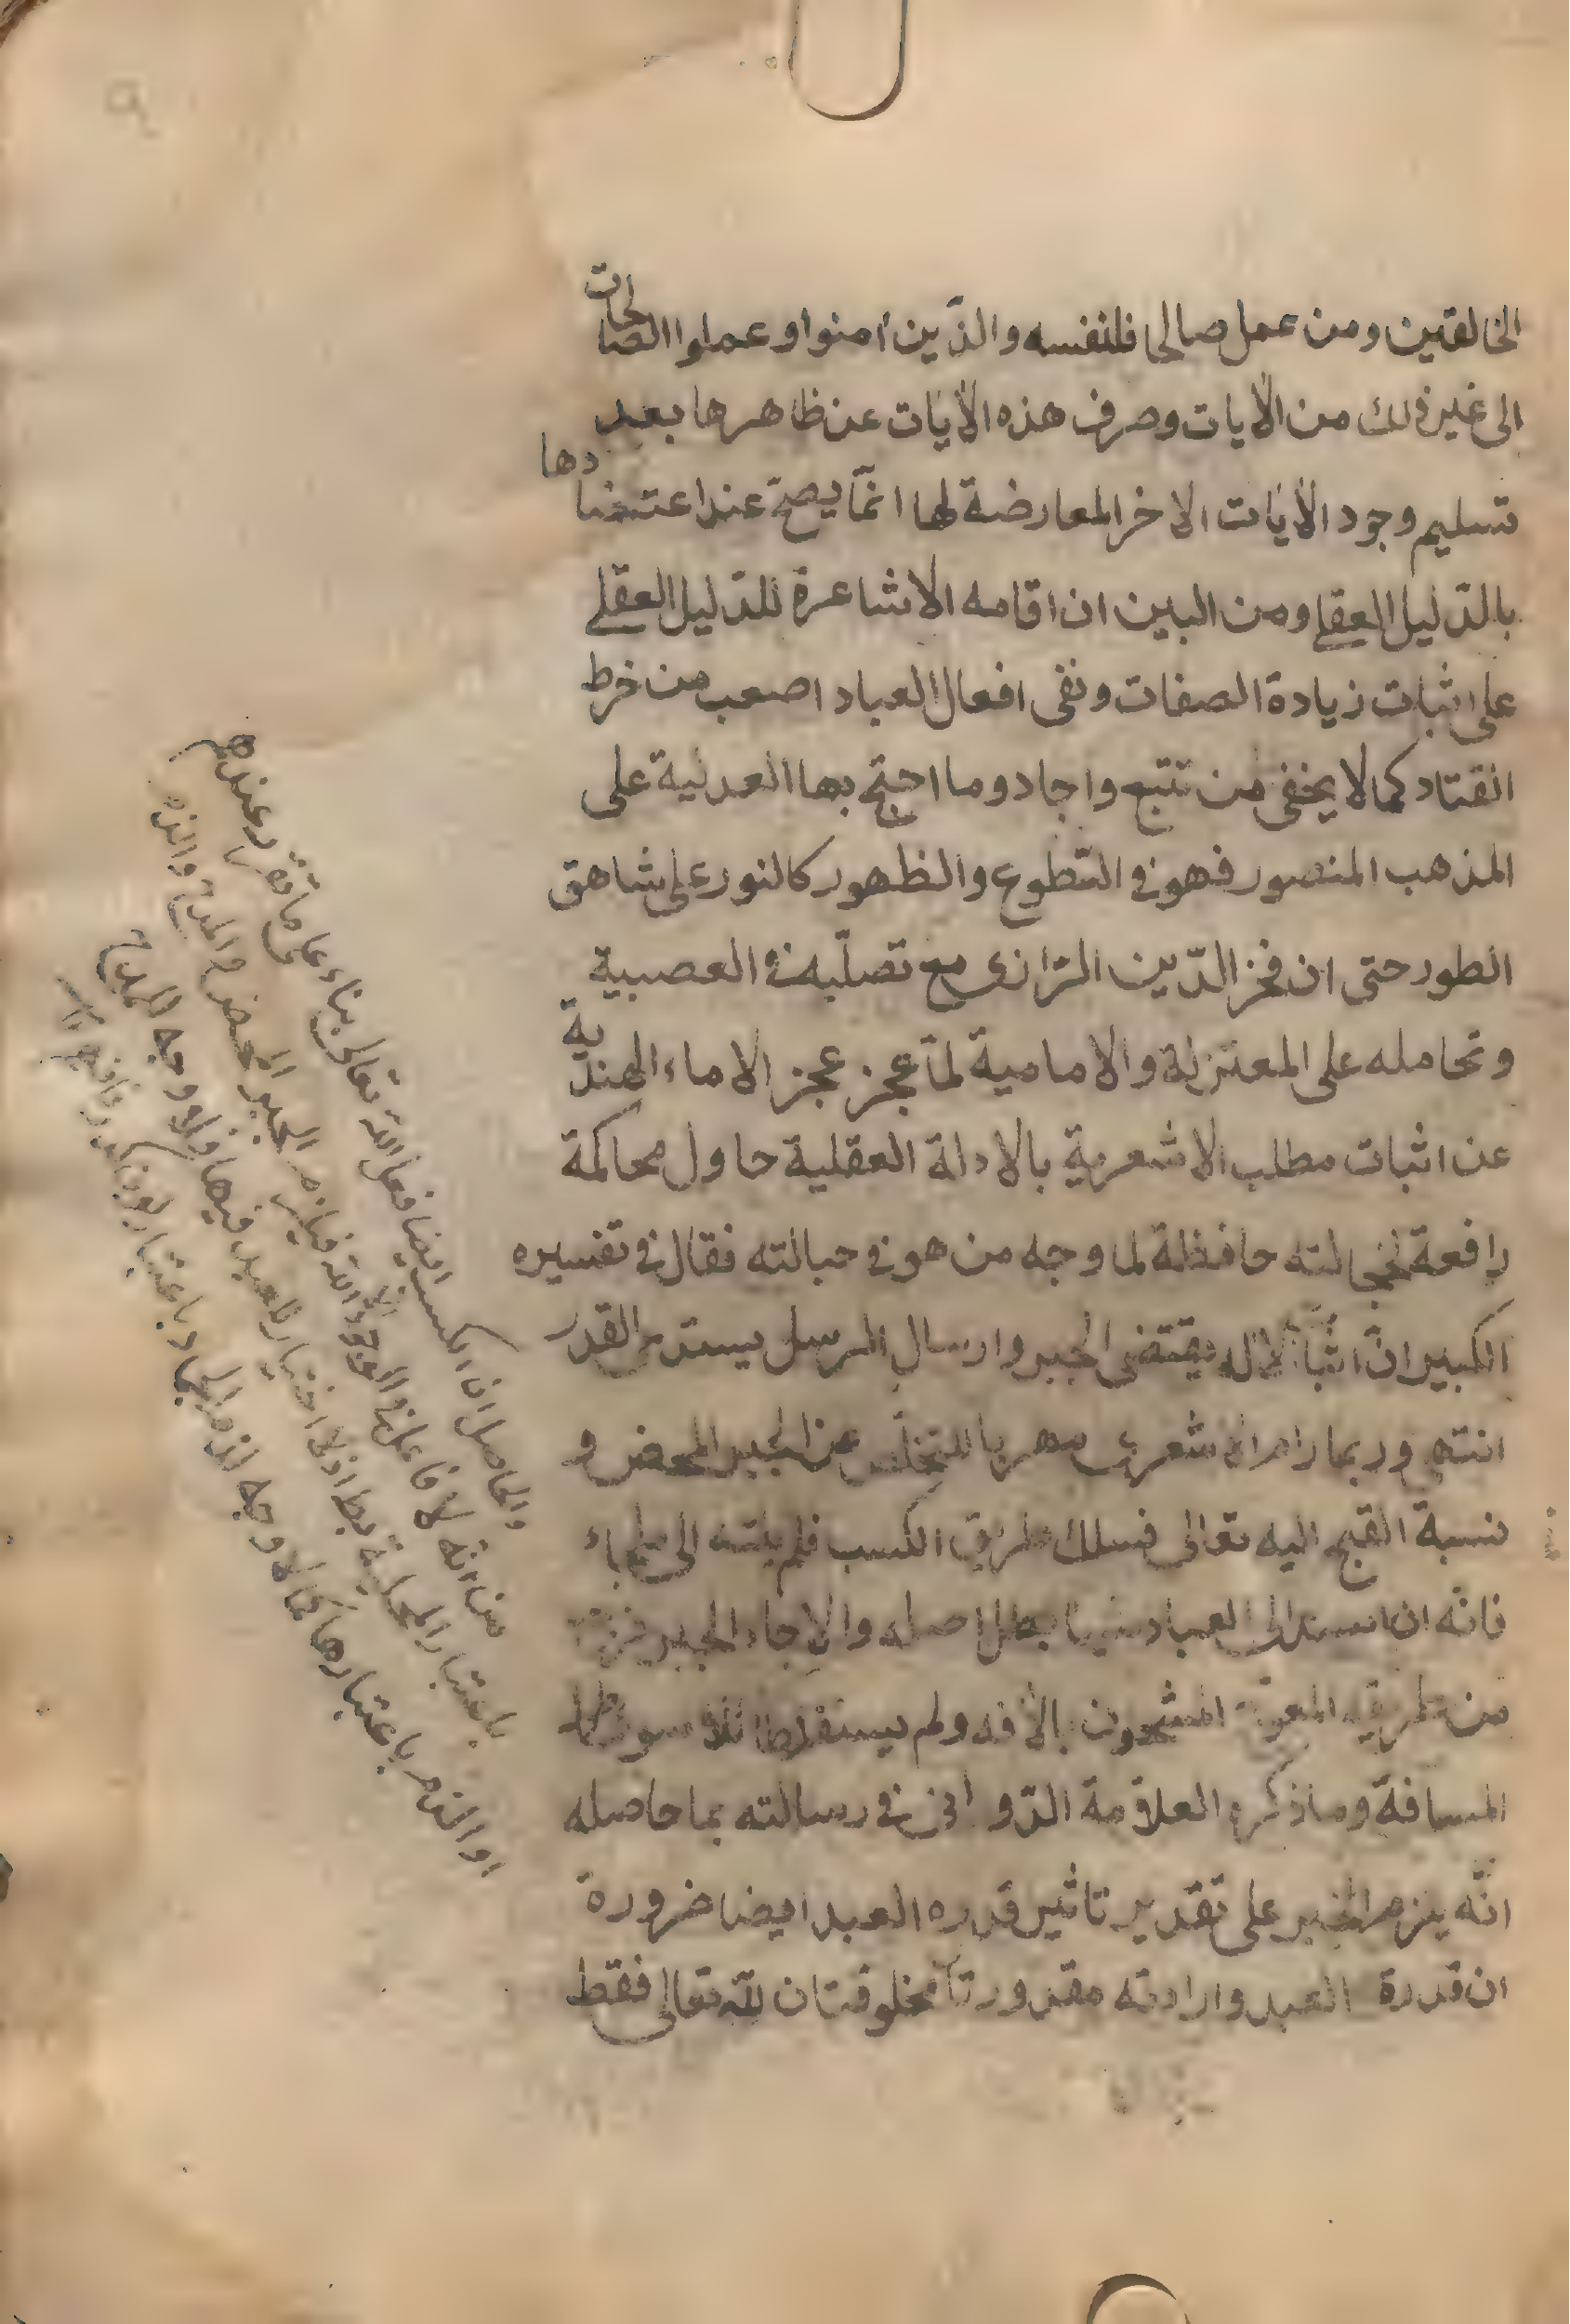 الخالقين ومن عمل صالحا فلنفسه والذّين آمنوا وعملوا الصالحات
الى غير ذلك من الأيات وصرف هذه الأيات عن ظاهرها بعد
تسليم وجود الأيات الاخر المعارضة لها انمّا يصحّ عند اعتضادها
بالدّليل العقلى ومن البين ان اقامه الاشاعرة للدّليل العقلے
على اثبات زيادة الصفات ونفى افعال العباد اصعب من خرط
القتاد كما لا يخفى من تتبع واجاد وما احتج بها العدلية على
المذهب المنصور فهو فى السّطوع والظهور كالنور على شاهق
الطور حتى ان فخر الدّين الرّازى مع تصلّبه فى العصبية
وتحامله على المعتزلة والامامية لمّا عجز عجز الاماء الهندية
عن اثبات مطلب الاشعرية بالادلة العقلية حاول محاكمة
رافعة لخجالته حافظة لما وجه من هو فى حبالته فقال فى تفسيره
الكبير انّ اثبات الاله يقتضى الجبر وارسال الرسل يستدعى القدر
انتهى وربما رام الاشعرى مهربا للتخلّص عن الجبر المحض و
نسبة القبح اليه تعالى فسلك طريق الكسب فلم يلتـ الى ملجاء
فانّه ان اسند الى العباد شيئا بطل اصله والا جاء الجبر
من طريقه المشحون بالآفه ولم يستفد
المسافة وما ذكره العلاّمة الدّوانى فى رسالته بما حاصله
انّه يلزم الجبر على تقدير تاثير قدره العبد ايضا ضرورة
ان قدرة العبد وارادته مقدورتا مخلوقتان للّه تعالى فقط
والحاصل ان الكسب ايضا فعل اللّه تعالى بناء على ما تقرّر عندهم
من انّه لا فاعل فى الوجود الا اللّه فيلزم الجبر المحض والمدح والذم
باعتبار المحلية اذ لا اختيار للعبد فيها فلا وجه للمدح
او الذم باعتبارها كما لا وجه لذم الجماد باعتبار